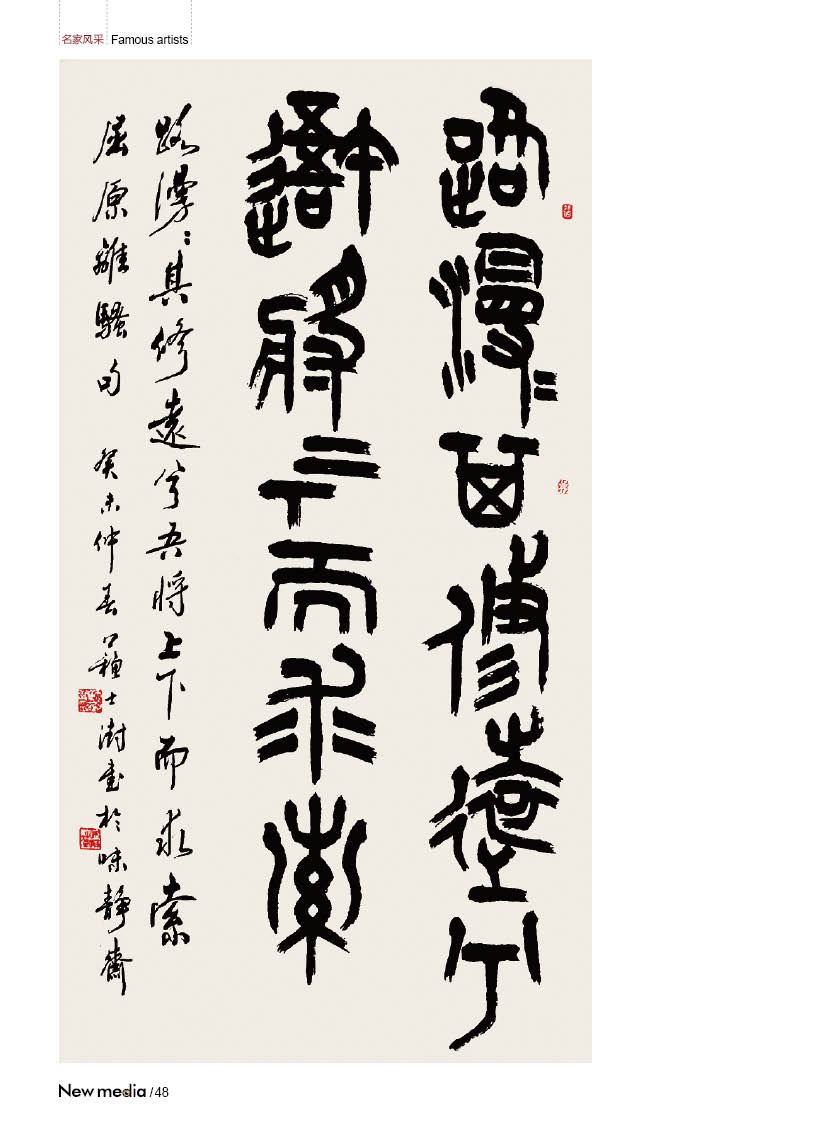 名家风采 Famous artists
路漫〻其修遠兮
吾將上下而求索
路漫〻其修遠兮吾將上下而求索
屈原離騷句 癸未仲春 蘇士澍書於味靜齋
New media / 48